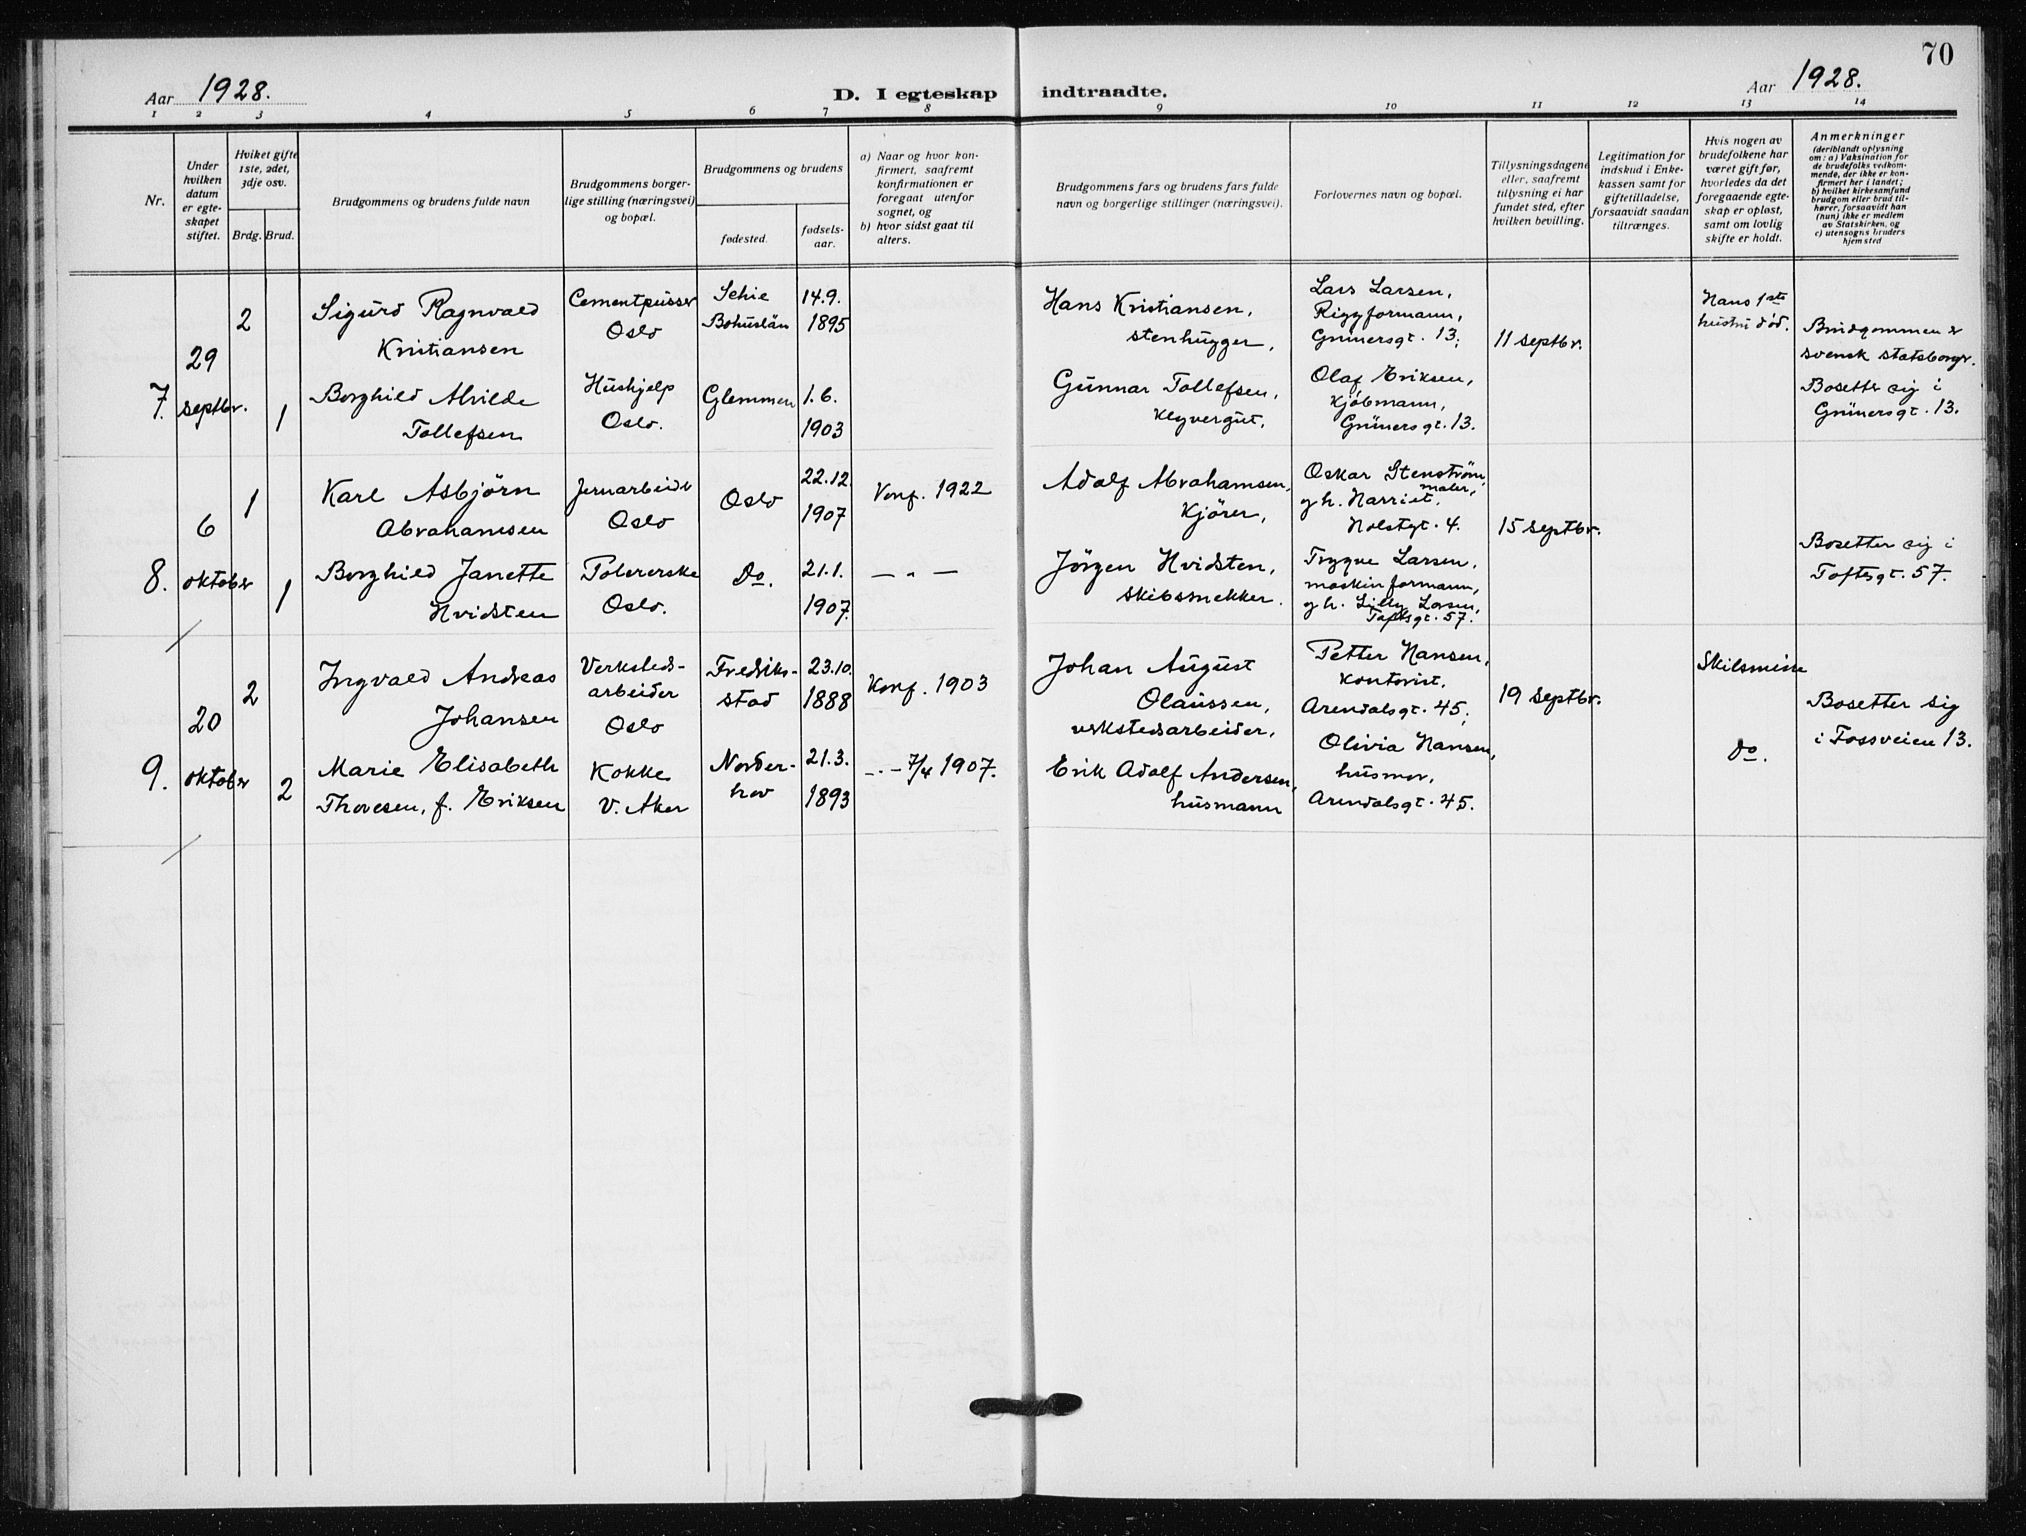 70
Aar 1928.
D. I egteskap indtraadte.
Aar 1928.
1 2 3 4 5 6 7 8 9 10 11 12 13 14
Nr.
Under
hvilken
datum
er egte-
skapet
stiftet.
Hviket gifte
1ste, 2det,
3dje osv.
Brdg. Brud.
Brudgommens og brudens fulde navn
Brudgommens borger-
lige stilling (næringsvei)
og bopæl.
Brudgommens og brudens
fødested.
fødsels-
aar.
a) Naar og hvor kon-
firmert, saafremt
konfirmationen er
foregaat utenfor
sognet, og
b) hvor sidst gaat til
alters.
Brudgommens fars og brudens fars fulde
navn og borgerlige stillinger (næringsvei).
Forlovernes navn og bopæl.
Tillysningsdagene
eller, saafremt
tillysning ei har
fundet sted, efter
hvilken bevilling.
Legitimation for
indskud i Enke-
kassen samt for
giftetilladelse,
forsaavidt saadan
tiltrænges.
Hvis nogen av
brudefolkene har
været gift før,
hvorledes da det
foregaaende egte-
skap er opløst,
samt om lovlig
skifte er holdt.
Anmerkninger
(deriblandt oplysning
om: a) Vaksination for
de brudefolks vedkom-
mende, der ikke er kon-
firmert her i landet;
b) hvilket kirkesamfund
brudgom eller brud til-
hører, forsaavidt han
(hun) ikke er medlem
av Statskirken, og
c) utensogns bruders
hjemsted
7.
29
septbr.
2
Sigurd Ragnvald
Kristiansen
Cementpusser
Oslo
Bohuslän
14.9.
1895
Hans Kristiansen,
stenhugger,
Lars Larsen,
Riggformann,
Grünersgt. 13;
11 septbr.
Hans 1ste
hustru død.
Brudgommen er
svensk statsborgr.
1
Borghild Alvilde
Tollefsen
Hushjelp
Oslo.
Glemmen
1.6.
1903
Gunnar Tollefsen,
Klyvergut.
Olaf Eriksen,
Kjøbmann,
Grünersgt. 13.
Bosetter sig i
Grünersgt. 13.
8.
6
oktober
1
Karl Asbjörn
Abrahamsen
Jernarbeider
Oslo
Oslo
22.12.
1907
Konf. 1922
Adolf Abrahamsen,
Kjörer,
Oskar Stenström,
maler,
g h. Harriet.
Holstgt. 4.
15 septbr.
1
Borghild Janette
Hvidsten
Polererske
Oslo.
Do.
21.1.
1907.
— " —
Jörgen Hvidsten,
skibsmekker.
Trygve Larsen,
maskinformann,
g h. Lilly Larsen,
Toftesgt. 57.
Bosetter sig i
Toftesgt. 57.
9.
20
oktober
2
Ingvald Andreas
Johansen
Verksteds-
arbeider
Oslo
Fredrik-
stad
23.10.
1888
Konf. 1903
Johan August
Olaussen,
verkstedsarbeider,
Petter Hansen,
kontorist,
Arendalsgt. 45;
19 septbr.
Skilsmisse
Bosetter sig
i Fossveien 13.
2
Marie Elisabeth
Thoresen, f. Eriksen
Kokke
V. Aker
Norder-
hov
21.3.
1893
— " — 7/4 1907.
Erik Adolf Andersen,
husmann
Olivia Hansen,
husmor,
Arendalsgt. 45.
Do.